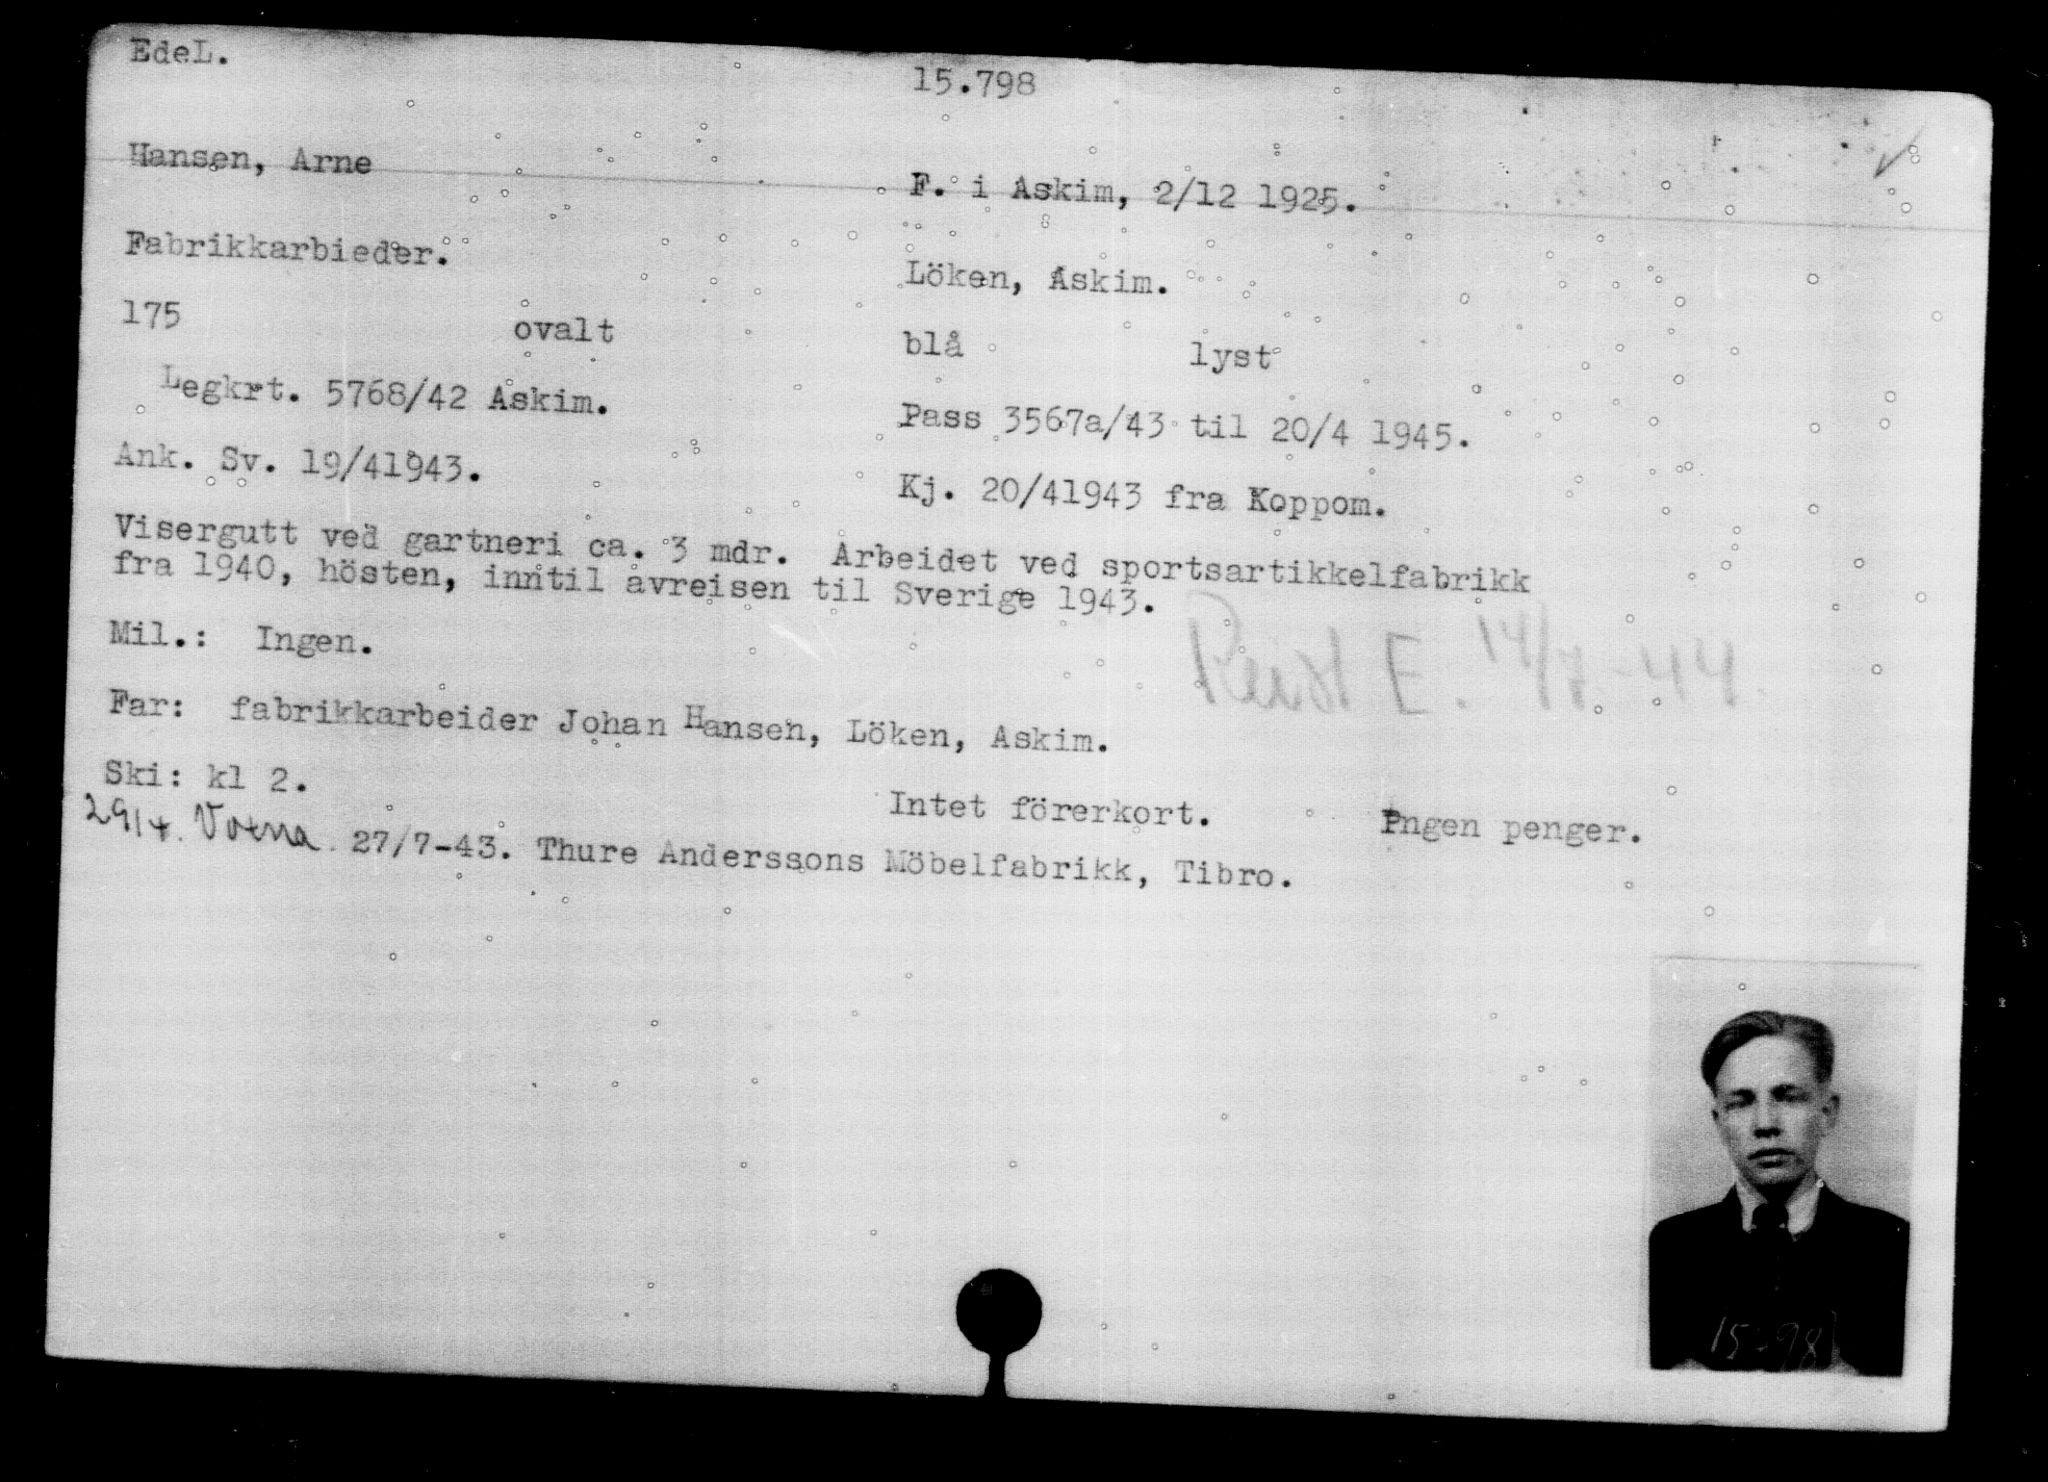 EdeL.
15.798
Hansen, Arne
F. i Askim, 2/12 1925.
Fabrikkarbieder.
Löken, Askim.
175 ovalt blå lyst
Legkrt. 5768/42 Askim.
Pass 3567a/43 til 20/4 1945.
Ank. Sv. 19/41943.
Kj. 20/41943 fra Koppom.
Visergutt ved gartneri ca. 3 mdr. Arbeidet ved sportsartikkelfabrikk
fra 1940, hösten, inntil avreisen til Sverige 1943.
Mil.: Ingen.
E. 14/7-44
Far: fabrikkarbeider Johan Hansen, Löken, Askim.
Ski: kl 2.
Intet förerkort. Ingen penger.
29/4. Votna 27/7-43. Thure Anderssons Möbelfabrikk, Tibro.